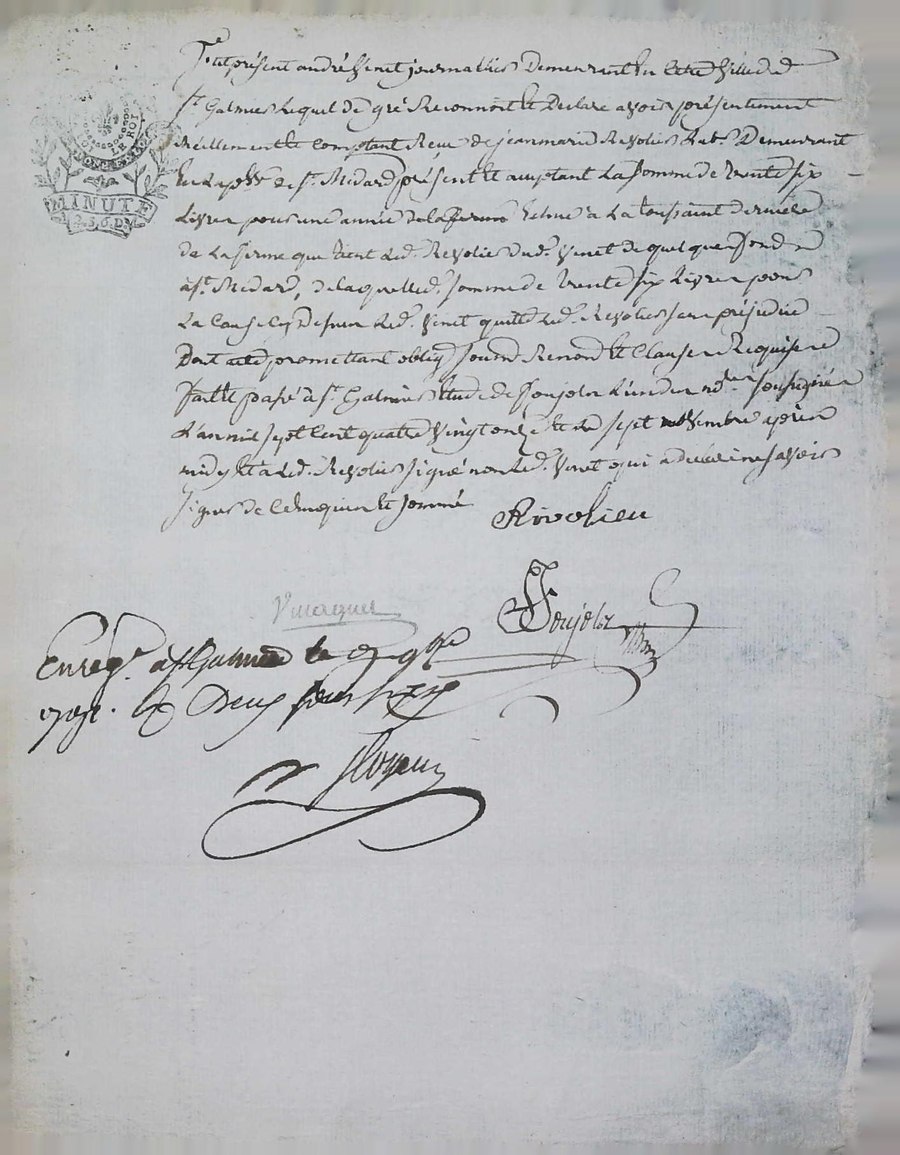 LE ROI
MINUTE
fut présent andré Vinet journallier Demeurant En cette Ville de
st. Galmier Lequel de gré Reconnoit et Declare avoir présentement
Réellement et Comptant Reçu de jeanmarie Revolier Lab.r Demeurant
En La psse de st. Médard présent et acceptant La somme de trente six
Livres pour une année de la ferme Echue à La toussaint dernière
de La ferme que tient Led. Revolier dud. Vinet de quelques fonds
à st. Médard, de laquelle d. somme de trente six Livres pour
La Cause Cy dessus Led. Vinet quitte Led. Revolier sans préjudice
Dont acte promettant oblig. soum. Renond. et Clauses Requises
fait et passé à st. Galmier Etude de Soujolor L'un des no.res soussignés
L'an mil sept Cent quatre Vingt onze et Le sept novembre après
midy et a Led. Revolier signé non Led. Vinet qui a déclaré ne savoir
signer de Ce Enquis et sommé
Rivolieu
Soujolor
Enreg. à st Galmier le 9bre
1791. Deux sous